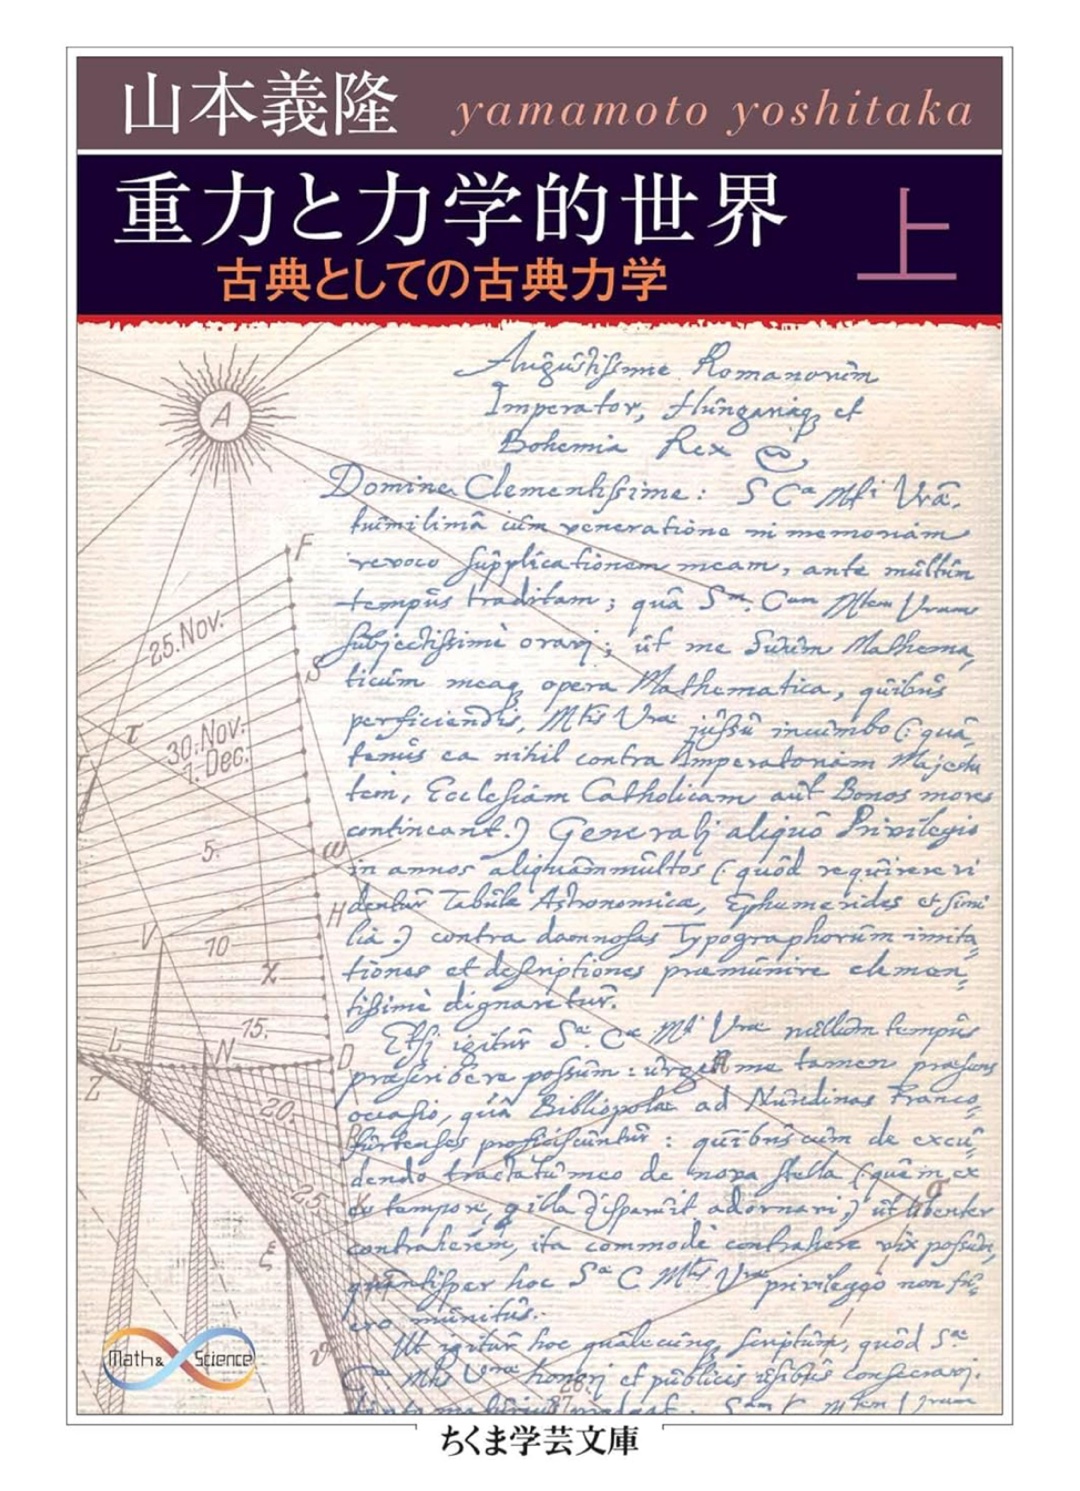 山本義隆 yamamoto yoshitaka
重力と力学的世界 上
古典としての古典力学
A
Augustissime Romanorum
Imperator, Hungariaq et
Bohemia Rex
Domine Clementissime: S Cᵃ Mᵗⁱ Vrã,
humilimâ cum veneratione in memoriam
revoco supplicationem meam, ante multum
F
tempus traditam; quâ Sᵐ. Cam Mtem Vram
25.Nov.
subjectissimè oravj; ut me Suum Mathema,
S
ticum meaq opera Mathematica, quibus
perficiendis, Mtis Vrae jussu incumbo (: quâ,
τ
30.Nov.
1. Dec.
tenus ea nihil contra Imperatoriam Majesta
tem, Ecclesiam Catholicam aut Bonos mores
contineant.) Generalj aliquo Privilegio
5.
ω
in annos aliquammultos (: quod requirere vi
dentur Tabulae Astronomicae, Ephemerides et simi
H
lia :) contra damnosas Typographorum imita,
V
10
χ
tiones et descriptiones praemunire clemen,
tissimè dignaretur.
15.
Etsj igitur Sᵃ. Cᵃ. Mᵗⁱ Vrae nullum tempus
L
N
D
Z
praescribere possum: urget me tamen praesens
occasio, quâ Bibliopolae ad Nundinas Franco,
20.
furtenses proficiscuntur: quibus cum de excu,
dendo tractatu meo de nova stella (: quem ex
25.
eo tempore, q illa disparuit adornavi,) ut libenter
σ
contraherem, ita commodè contrahere vix possum,
ξ
quantisper hoc Sᵃ C Mᵗⁱˢ Vrae privilegio non fu,
ero munitus.
Ut igitur hoc qualecunq scriptum, quod Sᵃᵉ
Math & Science
ν
Cᵃᵉ Mtis Vrae honorj et publicis usibus consecravj,
ちくま学芸文庫